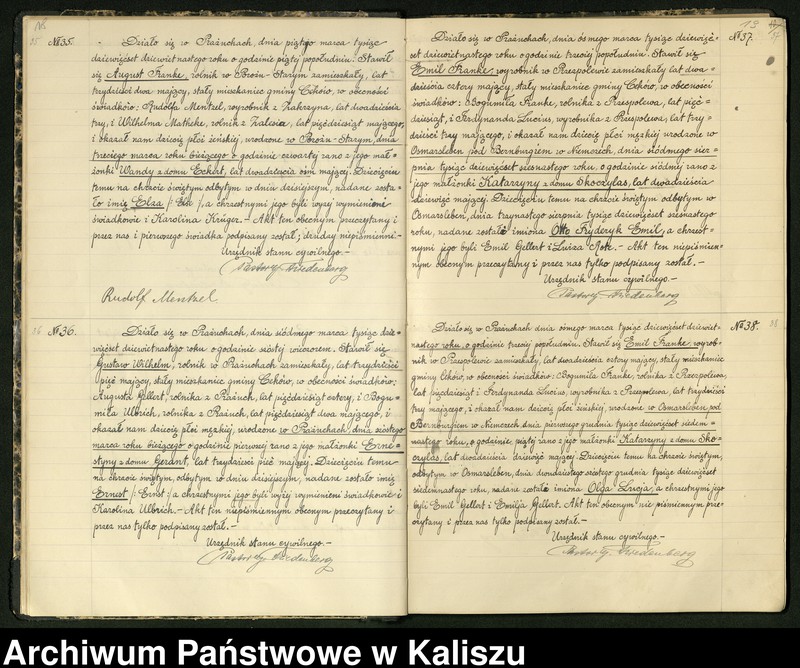 №35.
Działo się w Prażuchach, dnia piątego marca tysiąc
dziewięćset dziewiętnastego roku o godzinie piątej popołudniu. Stawił
się August Franke, rolnik w Prażu-Starym zamieszkały, lat
trzydzieści dwa mający, stały mieszkaniec gminy Ceków, w obecności
świadków: Rudolfa Mentzel, wyrobnik z Zakrzyna, lat dwadzieścia
trzy, i Wilhelma Matheke, rolnik z Zalesia, lat pięćdziesiąt mającego
i okazał nam dziecię płci żeńskiej, urodzone w Starym, dnia
trzeciego marca roku bieżącego o godzinie czwartej rano z jego mał=
żonki Wandy z domu Eckert, lat dwadzieścia ośm mającej. Dziecięciu
temu na chrzcie świętym odbytym w dniu dzisiejszym, nadane zosta=
ło imię Elza /: Else :/, a chrzestnymi jego byli wyżej wymienieni
świadkowie i Karolina Krüger.- Akt ten obecnym przeczytany i
przez nas i pierwszego świadka podpisany został; drudzy niepiśmienni.-
Urzędnik stanu cywilnego.-
Pastor Friedenberg
Rudolf Mentzel
36 №36.
Działo się w Prażuchach, dnia siódmego marca tysiąc dzie=
więćset dziewiętnastego roku o godzinie szóstej wieczorem. Stawił się
Gustaw Wilhelm, rolnik w Prażuchach zamieszkały, lat trzydzieści
pięć mający, stały mieszkaniec gminy Ceków, w obecności świadków:
Augusta Gellert, rolnika z Prażuch, lat pięćdziesiąt cztery, i Bogu=
miła Ulbrich, rolnika z Prażuch, lat pięćdziesiąt dwa mającego, i
okazał nam dziecię płci męzkiej, urodzone w Prażuchach, dnia szóstego
marca roku bieżącego o godzinie pierwszej rano z jego małżonki Erne=
styny z domu Gerant, lat trzydzieści pięć mającej. Dziecięciu temu
na chrzcie świętym, odbytym w dniu dzisiejszym, nadane zostało imię
Ernest /: Ernst :/, a chrzestnymi jego byli wyżej wymienieni świadkowie i
Karolina Ulbrich.- Akt ten niepiśmiennym obecnym przeczytany i
przez nas tylko podpisany został.-
Urzędnik stanu cywilnego.-
Pastor Friedenberg
13
№37.
Działo się w Prażuchach, dnia ósmego marca tysiąc dziewięć=
set dziewiętnastego roku o godzinie trzeciej popołudniu. Stawił się
Emil Franke, wyrobnik w Przespolewie zamieszkały, lat dwa=
dzieścia cztery mający, stały mieszkaniec gminy Ceków, w obecności
świadków: Bogumiła Franke, rolnika z Przespolewa, lat pięć=
dziesiąt, i Ferdynanda Lucius, wyrobnika z Przespolewa, lat trzy=
dzieści trzy mającego, i okazał nam dziecię płci męzkiej urodzone w
Osmarsleben pod Bernburgiem w Niemczech, dnia siódmego sier=
pnia tysiąc dziewięćset szesnastego roku, o godzinie siódmej rano z
jego małżonki Katarzyny z domu Skoczylas, lat dwadzieścia
dziewięć mającej. Dziecięciu temu na chrzcie świętym odbytym w
Osmarsleben, dnia trzynastego sierpnia tysiąc dziewięćset szesnastego
roku, nadane zostały imiona Otto Fryderyk Emil, a chrzest=
nymi jego byli Emil Gellert i Luiza.- Akt ten niepiśmien=
nym obecnym przeczytany i przez nas tylko podpisany został.-
Urzędnik stanu cywilnego.-
Pastor Friedenberg
№38. 38
Działo się w Prażuchach, dnia ósmego marca tysiąc dziewięćset dziewięt=
nastego roku, o godzinie trzeciej popołudniu. Stawił się Emil Franke, wyrob=
nik w Przespolewie zamieszkały, lat dwadzieścia cztery mający, stały mieszkaniec
gminy Ceków, w obecności świadków: Bogumiła Franke, rolnika z Przespolewa,
lat pięćdziesiąt i Ferdynanda Lucius, wyrobnika z Przespolewa, lat trzydzieści
trzy mającego, i okazał nam dziecię płci żeńskiej, urodzone w Osmarsleben pod
Bernburgiem w Niemczech, dnia pierwszego grudnia tysiąc dziewięćset siedem=
nastego roku, o godzinie piątej rano z jego małżonki Katarzyny z domu Sko=
czylas, lat dwadzieścia dziewięć mającej. Dziecięciu temu na chrzcie świętym,
odbytym w Osmarsleben, dnia dwudziestego szóstego grudnia tysiąc dziewięćset
siedemnastego roku, nadane zostały imiona Olga Lucja, a chrzestnymi jego
byli Emil Gellert i Emilja Gellert. Akt ten obecnym nie piśmiennym prze=
czytany i przez nas tylko podpisany został.-
Urzędnik stanu cywilnego.-
Pastor Friedenberg
Archiwum Państwowe w Kaliszu